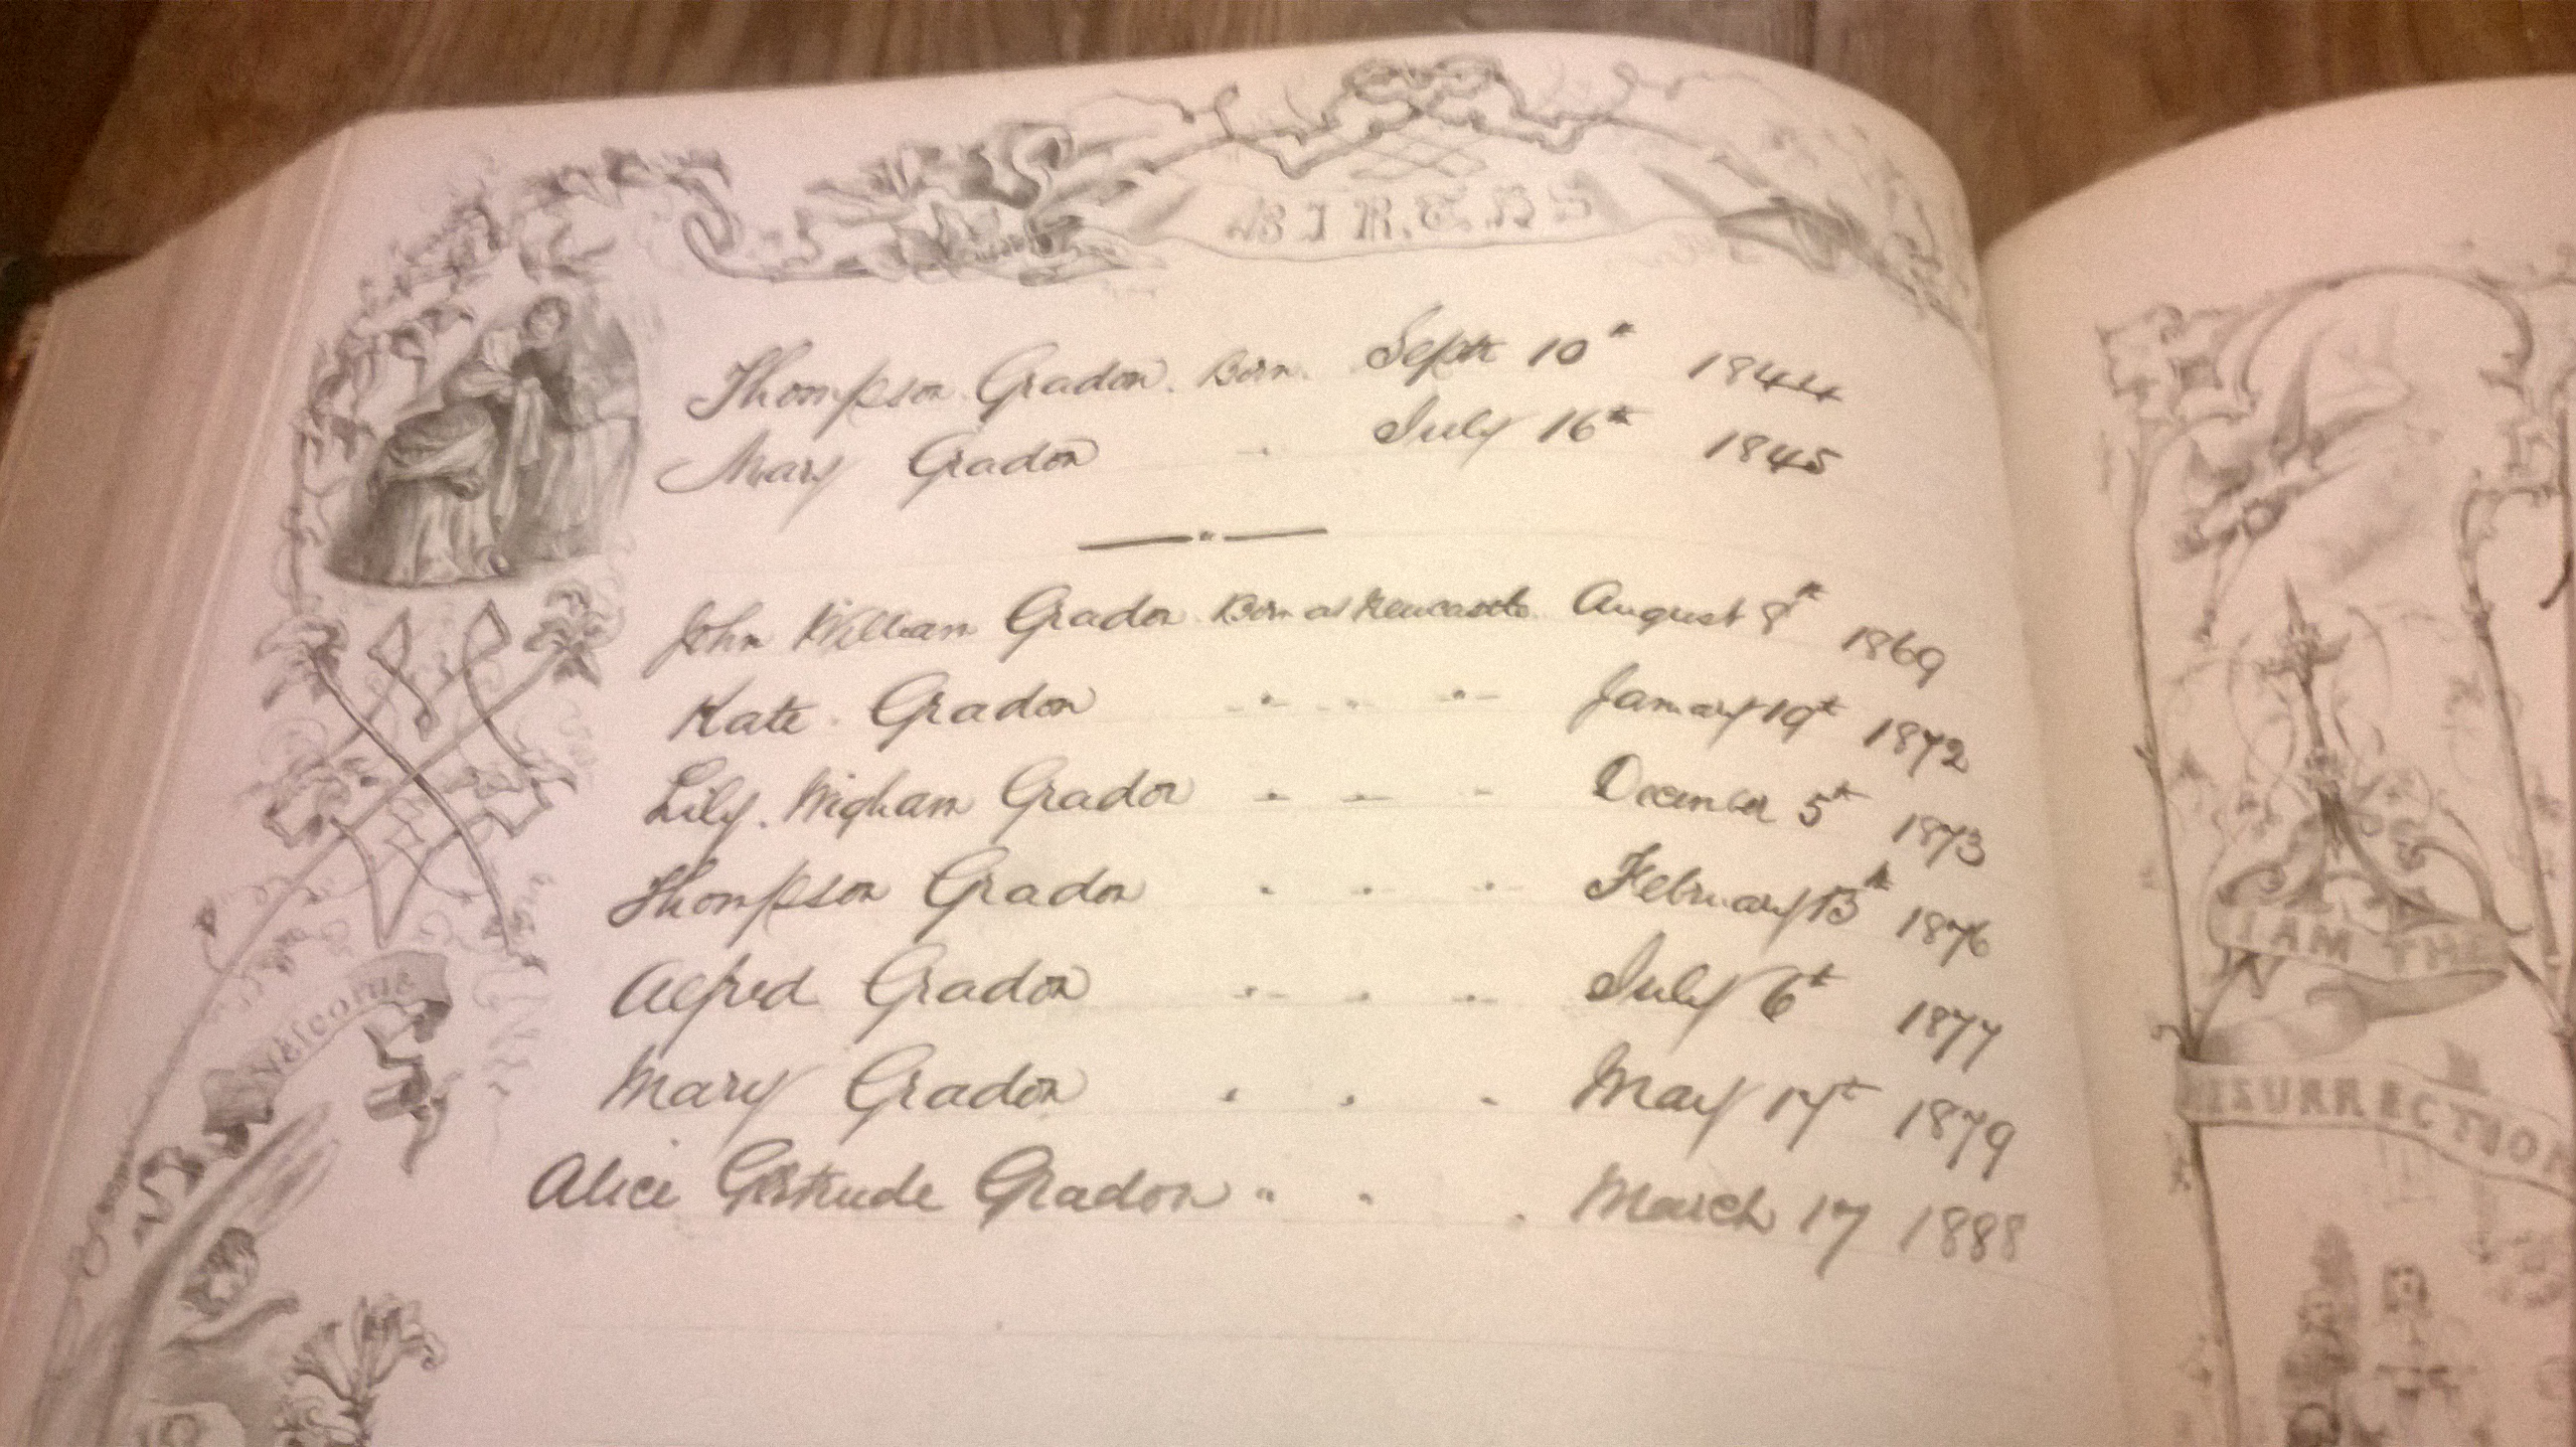 BIRTHS
Thompson Gradon. Born. Sept 10th 1844
Mary Gradon " July 16th 1845
John William Gradon. Born at Newcastle. August 8th 1869
Kate. Gradon " " " January 19th 1872
Lily. Wigham Gradon " " " December 5th 1873
Thompson Gradon " " " February 13th 1876
Alfred Gradon " " " July 6th 1877
Mary Gradon " " " May 17th 1879
Alice Gertrude Gradon " " " March 17 1888
Welcome
I AM THE
RESURRECTION